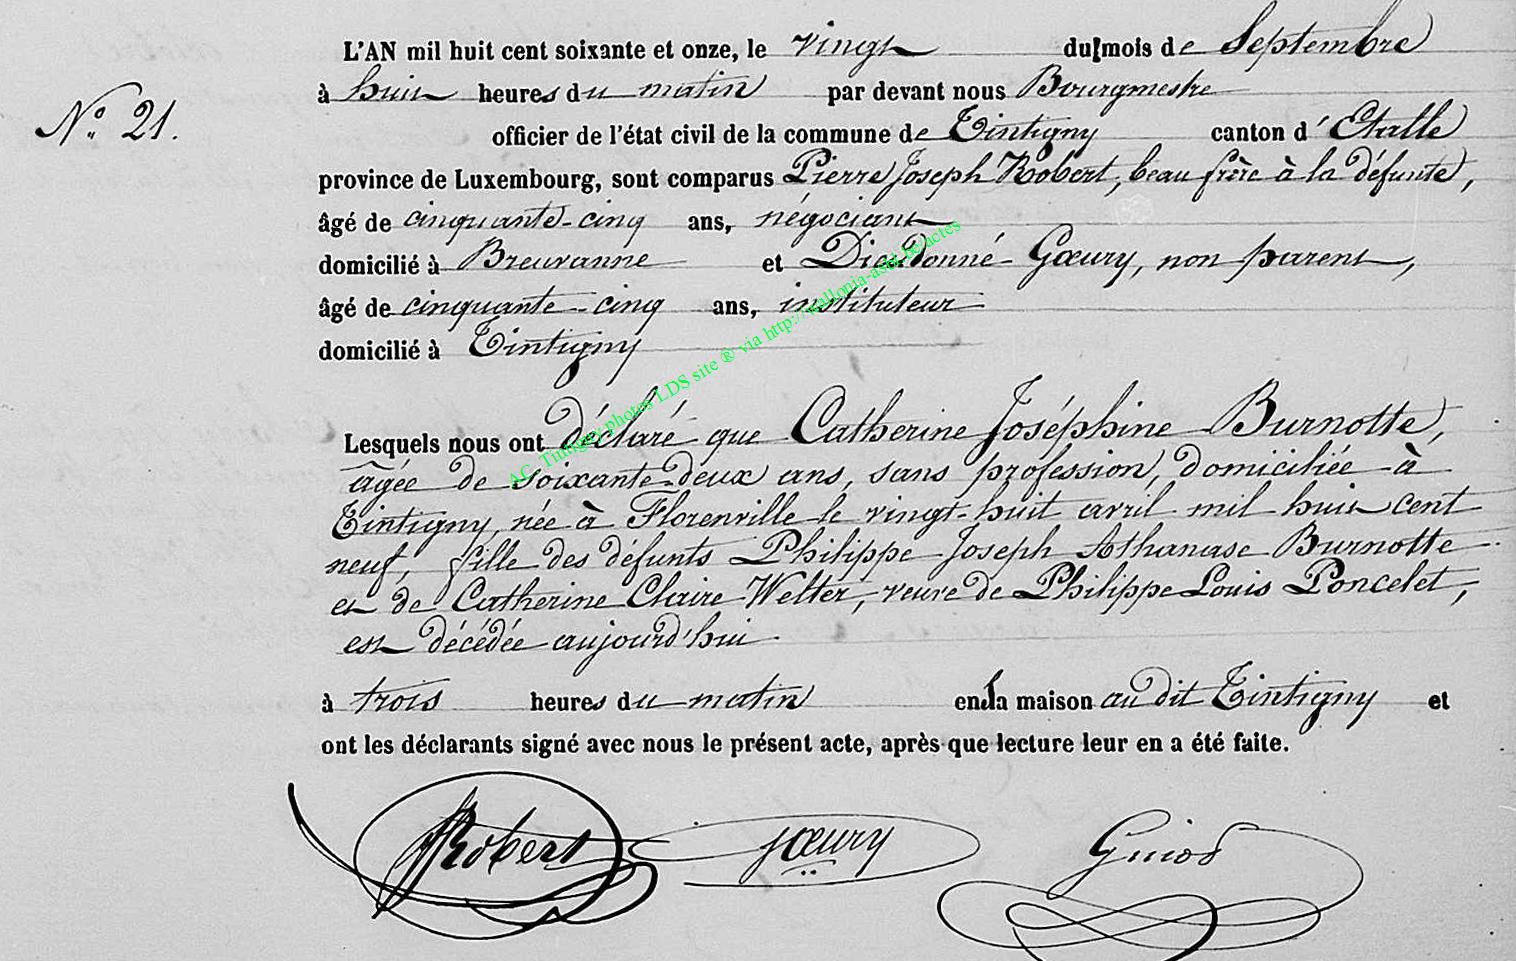 L'AN mil huit cent soixante et onze, le vingt du mois de Septembre
à huit heures du matin par devant nous Bourgmestre
No. 21.
officier de l'état civil de la commune de Tintigny canton d'Etalle
province de Luxembourg, sont comparus Pierre Joseph Robert, beau frère à la défunte,
âgé de cinquante-cinq ans, négociant
domicilié à Breuvanne et Dieudonné Gœury, non parent,
âgé de cinquante-cinq ans, instituteur
domicilié à Tintigny
AC Tintigny photos LDS site ® via http://wallonia-asbl.be/actes
Lesquels nous ont déclaré que Catherine Joséphine Burnotte,
âgée de soixante-deux ans, sans profession, domiciliée à
Tintigny, née à Florenville le vingt-huit avril mil huit cent
neuf, fille des défunts Philippe Joseph Athanase Burnotte
et de Catherine Claire Welter, veuve de Philippe Louis Poncelet,
est décédée aujourd'hui
à trois heures du matin en la maison au dit Tintigny et
ont les déclarants signé avec nous le présent acte, après que lecture leur en a été faite.
Robert Gœury